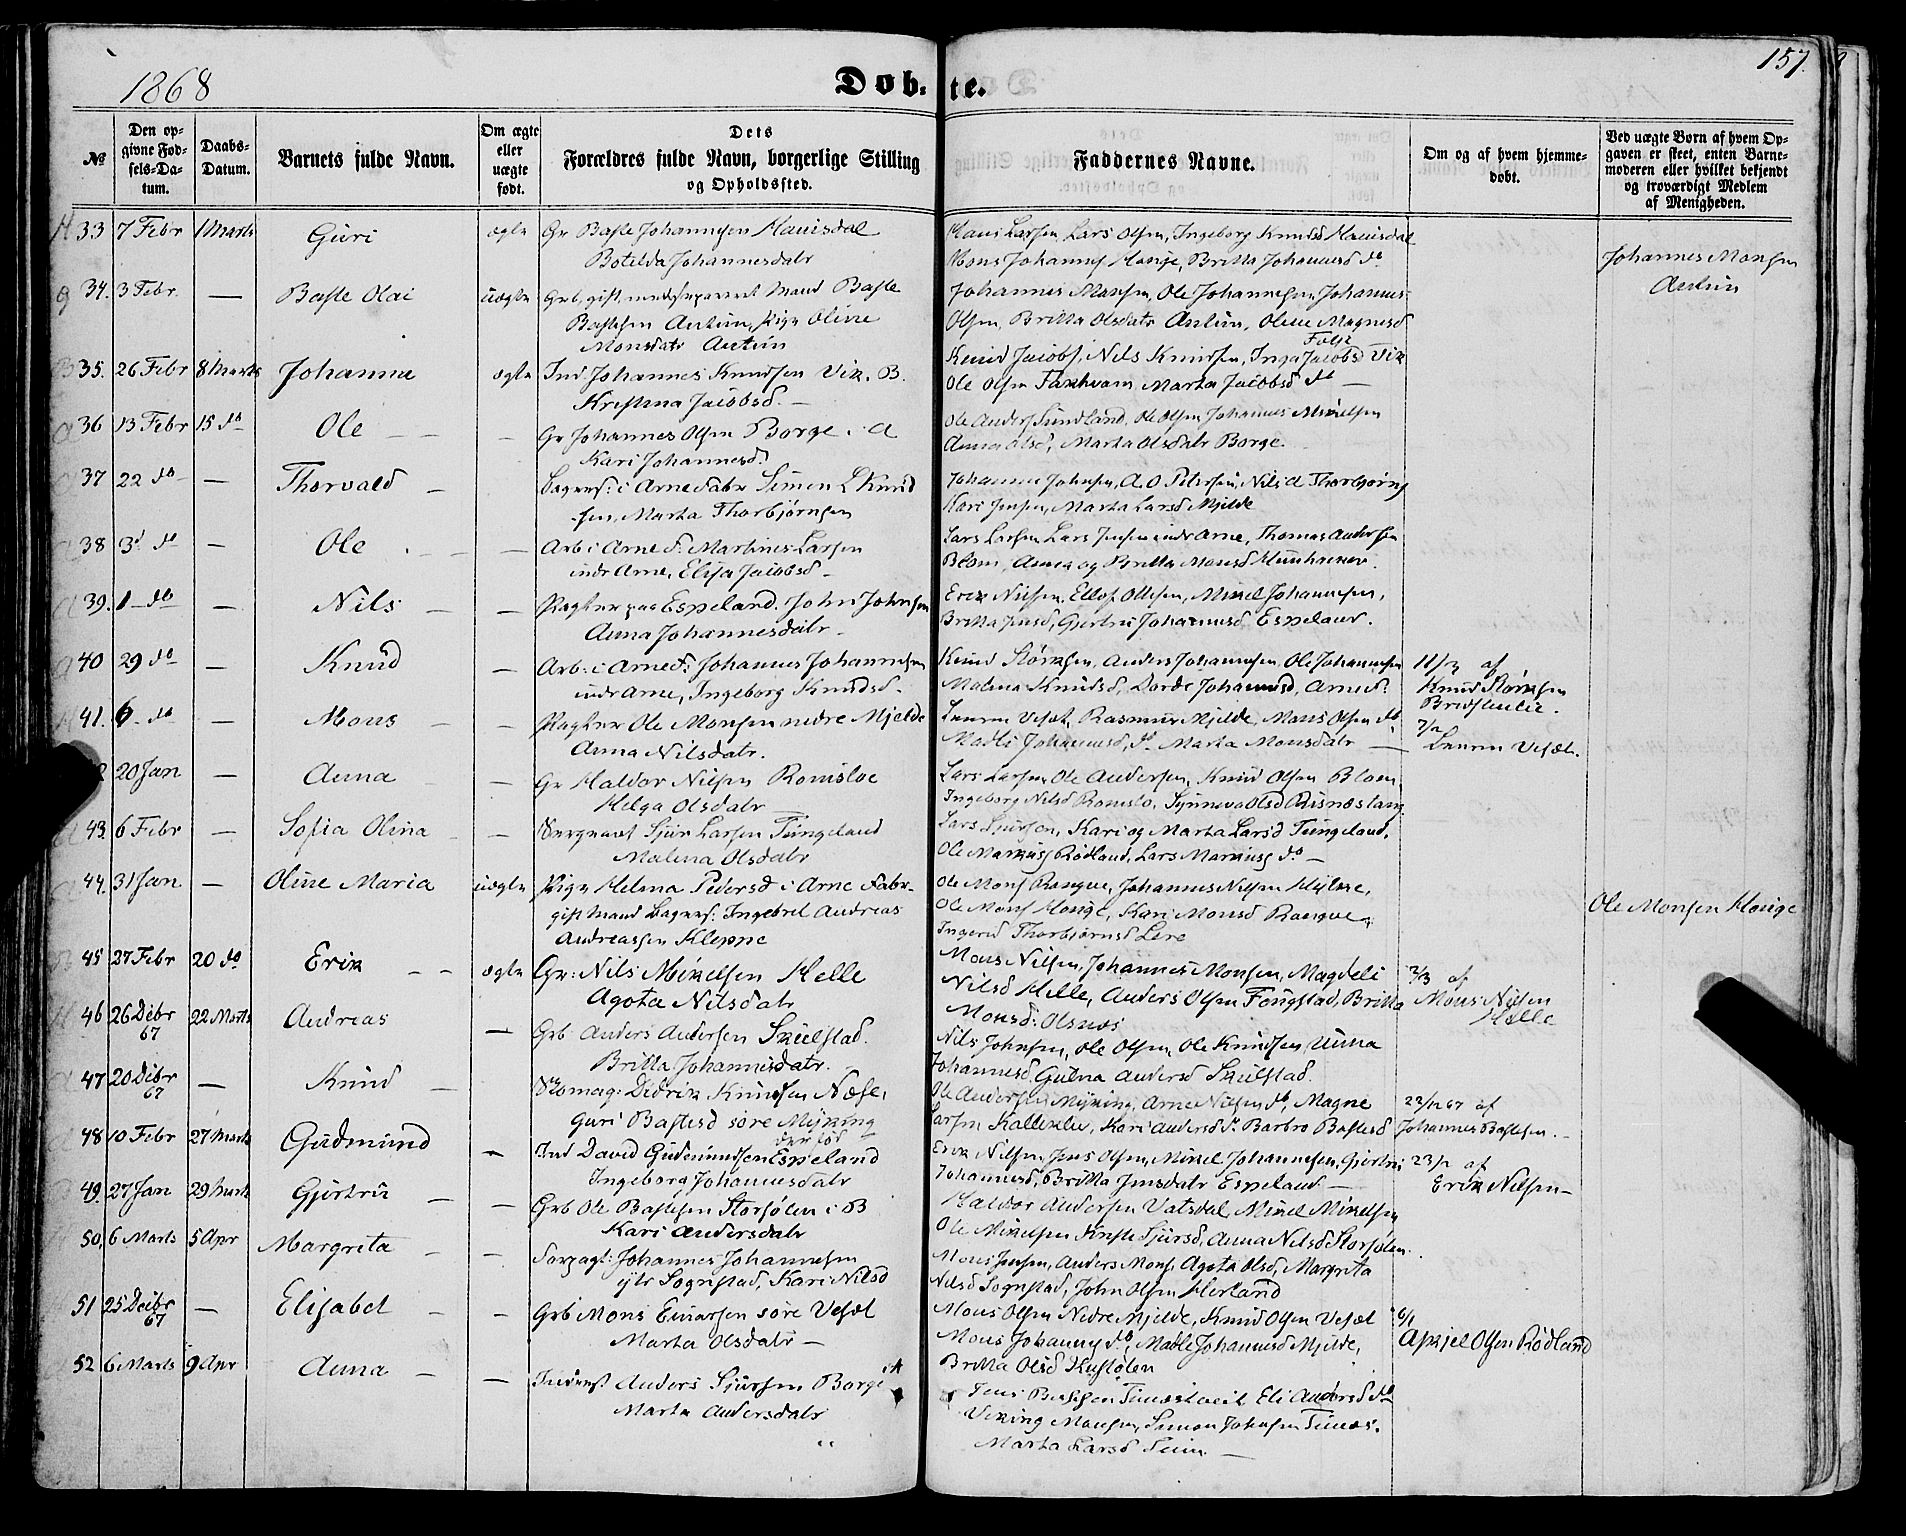 1868
Døb-te.
157.
No
Den op-
givne Fød-
sels-Da-
tum.
Daabs-
Datum.
Barnets fulde Navn.
Om ægte
eller
uægte
født.
Dets
Forældres fulde Navn, borgerlige Stilling
og Opholdssted.
Faddernes Navne.
Om og af hvem hjemme-
døbt.
Ved uægte Børn af hvem Op-
gaven er skeet, enten Barne-
moderen eller hvilket bekjendt
og troværdigt Medlem
af Menigheden.
33 7 Febr 1 Marts Guri ægte Gr Baste Johannesen Hauisdal
Botilda Johannesdatr
Lars Olsen, Ingeborg Knudsd Hauisdal
Mons Johannes Houge, Britta Johannesd do
34. 3 Febr. — Baste Olai uægte gift Mand Baste
Bastesen Antun, Pige Oline
Monsdatr Antun
Johannes Monsen, Ole Johannesen, Johannes
Olsen, Britta Olsdatr Antun, Oline Magnesd
Johannes Monsen
Antun
35. 26 Febr 8 Marts Johanna ægte Ind. Johannes Knudsen Vik. B.
Kristina Jacobsd. —
Knud Jacobs, Nils Knudsen, Inga Jacobsd Vik
Ole Olsen Taxhvam, Marta Jacobsd do —
36 13 Febr 15 do Ole — — — Gr Johannes Olsen Borge. A
Kari Johannesd.
Ole Anders Sundland, Ole Olsen, Johannes Mikelsen
Anna Olsd, Marta Olsdatr Borge
37 22 do — Thorvald — i Arne Fabr Simen L Knud
sen, Marta Thorbjørnsen
Johannes Johnsen, A O Petersen, Nils A Thorbjørns
Kari Jensen, Marta Larsd Mjelde
38 3 do — Ole — — Arb i Arne F. Martines Larsen
indr Arne, Elisa Jacobsd —
Lars Larsen, Lars Jensen indr Arne, Thomas Andersen
Blom, Anna og Britta Monsd
39. 1 do — Nils — — Pagter paa Espeland. John Johnsen
Anna Johannesdatr —
Erik Nilsen, Ellof Ottesen, Mikel Johannesen,
Britta Jensd, Gjertru Johannesd Espeland.
40 29 do — Knud — Arb. i Arne F: Johannes Johannesen
indr Arne, Ingeborg Knudsd.
Knud Størksen, Anders Johannesen, Ole Johannesen
Malena Knudsd, Dorde Johannesd, Arne F.
11/3 af
Knud Størksen
41. 6 do — Mons — — Pagter Ole Monsen nedre Mjelde
Anna Nilsdatr.
Rasmus Mjelde, Mons Olsen do
Madli Johannesd, do Marta Monsdatr —
20 Jan — Anna — — Gr Haldor Nilsen Romsloe
Helga Olsdatr —
Lars Larsen, Ole Andersen, Knud Olsen Bloem
Ingeborg Nilsd Romslo, Synneva Olsd Risnæstang
43. 6 Febr — Sofia Olina — — Sjur Larsen Tungeland
Malena Olsdatr
Lars Sjursen, Kari og Marta Larsd Tungeland,
Ole Markus Rødland, Lars Markus do —
44. 31 Jan — Oline Maria uægte Pige Helena Pedersd i Arne Fabr.
gift Mand Ingebret Andreas
Andreassen Kleppe
Johannes Nilsen
Ole Mons Houge, Kari Monsd
Ingerid Thorbjørnsd Lere
Ole Monsen Houge
45 27 Febr 20 do Erik — — ægte Gr: Nils Mikelsen Helle
Agota Nilsdatr
Mons Nilsen, Johannes Monsen, Magdeli
Nilsd Helle, Anders Olsen Fougstad, Britta
Monsd: Olsnes
2/3 af
Mons Nilsen
Helle
46 26 Debr 67 22 Marts Andreas — Grb Anders Andersen Skulstad.
Britta Johannesdatr.
Nils Johnsen, Ole Olsen, Ole Knudsen, Unna
Johannesd, Gulna Andersd Skulstad.
47 20 Debr 67 — Knud — Skomag: Didrik Knudsen Næse,
Guri Bastesd søre Myking
Ole Andersen Myking, Arne Nilsen do, Magne
Larsen Kallekleiv, Kari Andersd do Barbro Bastesd
22/12 67 af
Johannes Bastesen.
48 10 Febr 27 Marts Gudmund — Ind David Gudmundsen Espeland
Ingeborg Johannesdatr
Erik Nilsen, Jens Olsen, Mikel Johannesen, Gjertru
Johannesd, Britta Jensdatr Espeland —
23/2 af
Erik Nilsen —
49. 27 Jan 29 Marts Gjertru — — Grb Ole Bastesen Størsølen i B
Kari Andersdatr
Haldor Andersen Vatsdal, Mikel Mikelsen
Ole Mikelsen, Sjursd, Anna Nilsd Størsølen.
50. 6 Marts 5 Apr Margrita — — Forpagt: Johannes Johannesen
ytr Sognstad, Kari Nilsd
Mons Jensen, Anders Mons, Agota Olsd, Margreta
Nilsd Sognstad, John Olsen Herland
51 25 Debr 67 — Elisabet — — Grb Mons Einarsen søre Vesæt
Marta Olsdatr —
Mons Olsen Nedre Mjelde, Knud Olsen Vesæt
Mons Johannes do, Madle Johannesd Mjelde,
Britta Olsd
6/1
Askjel Olsen Rødland
52 6 Marts 9 Apr Anna — — Anders Sjursen Borge A
Marta Andersdatr
Jens Eli Andersd do
Viking Monsen, Simon Johnsen
Marta Larsd —